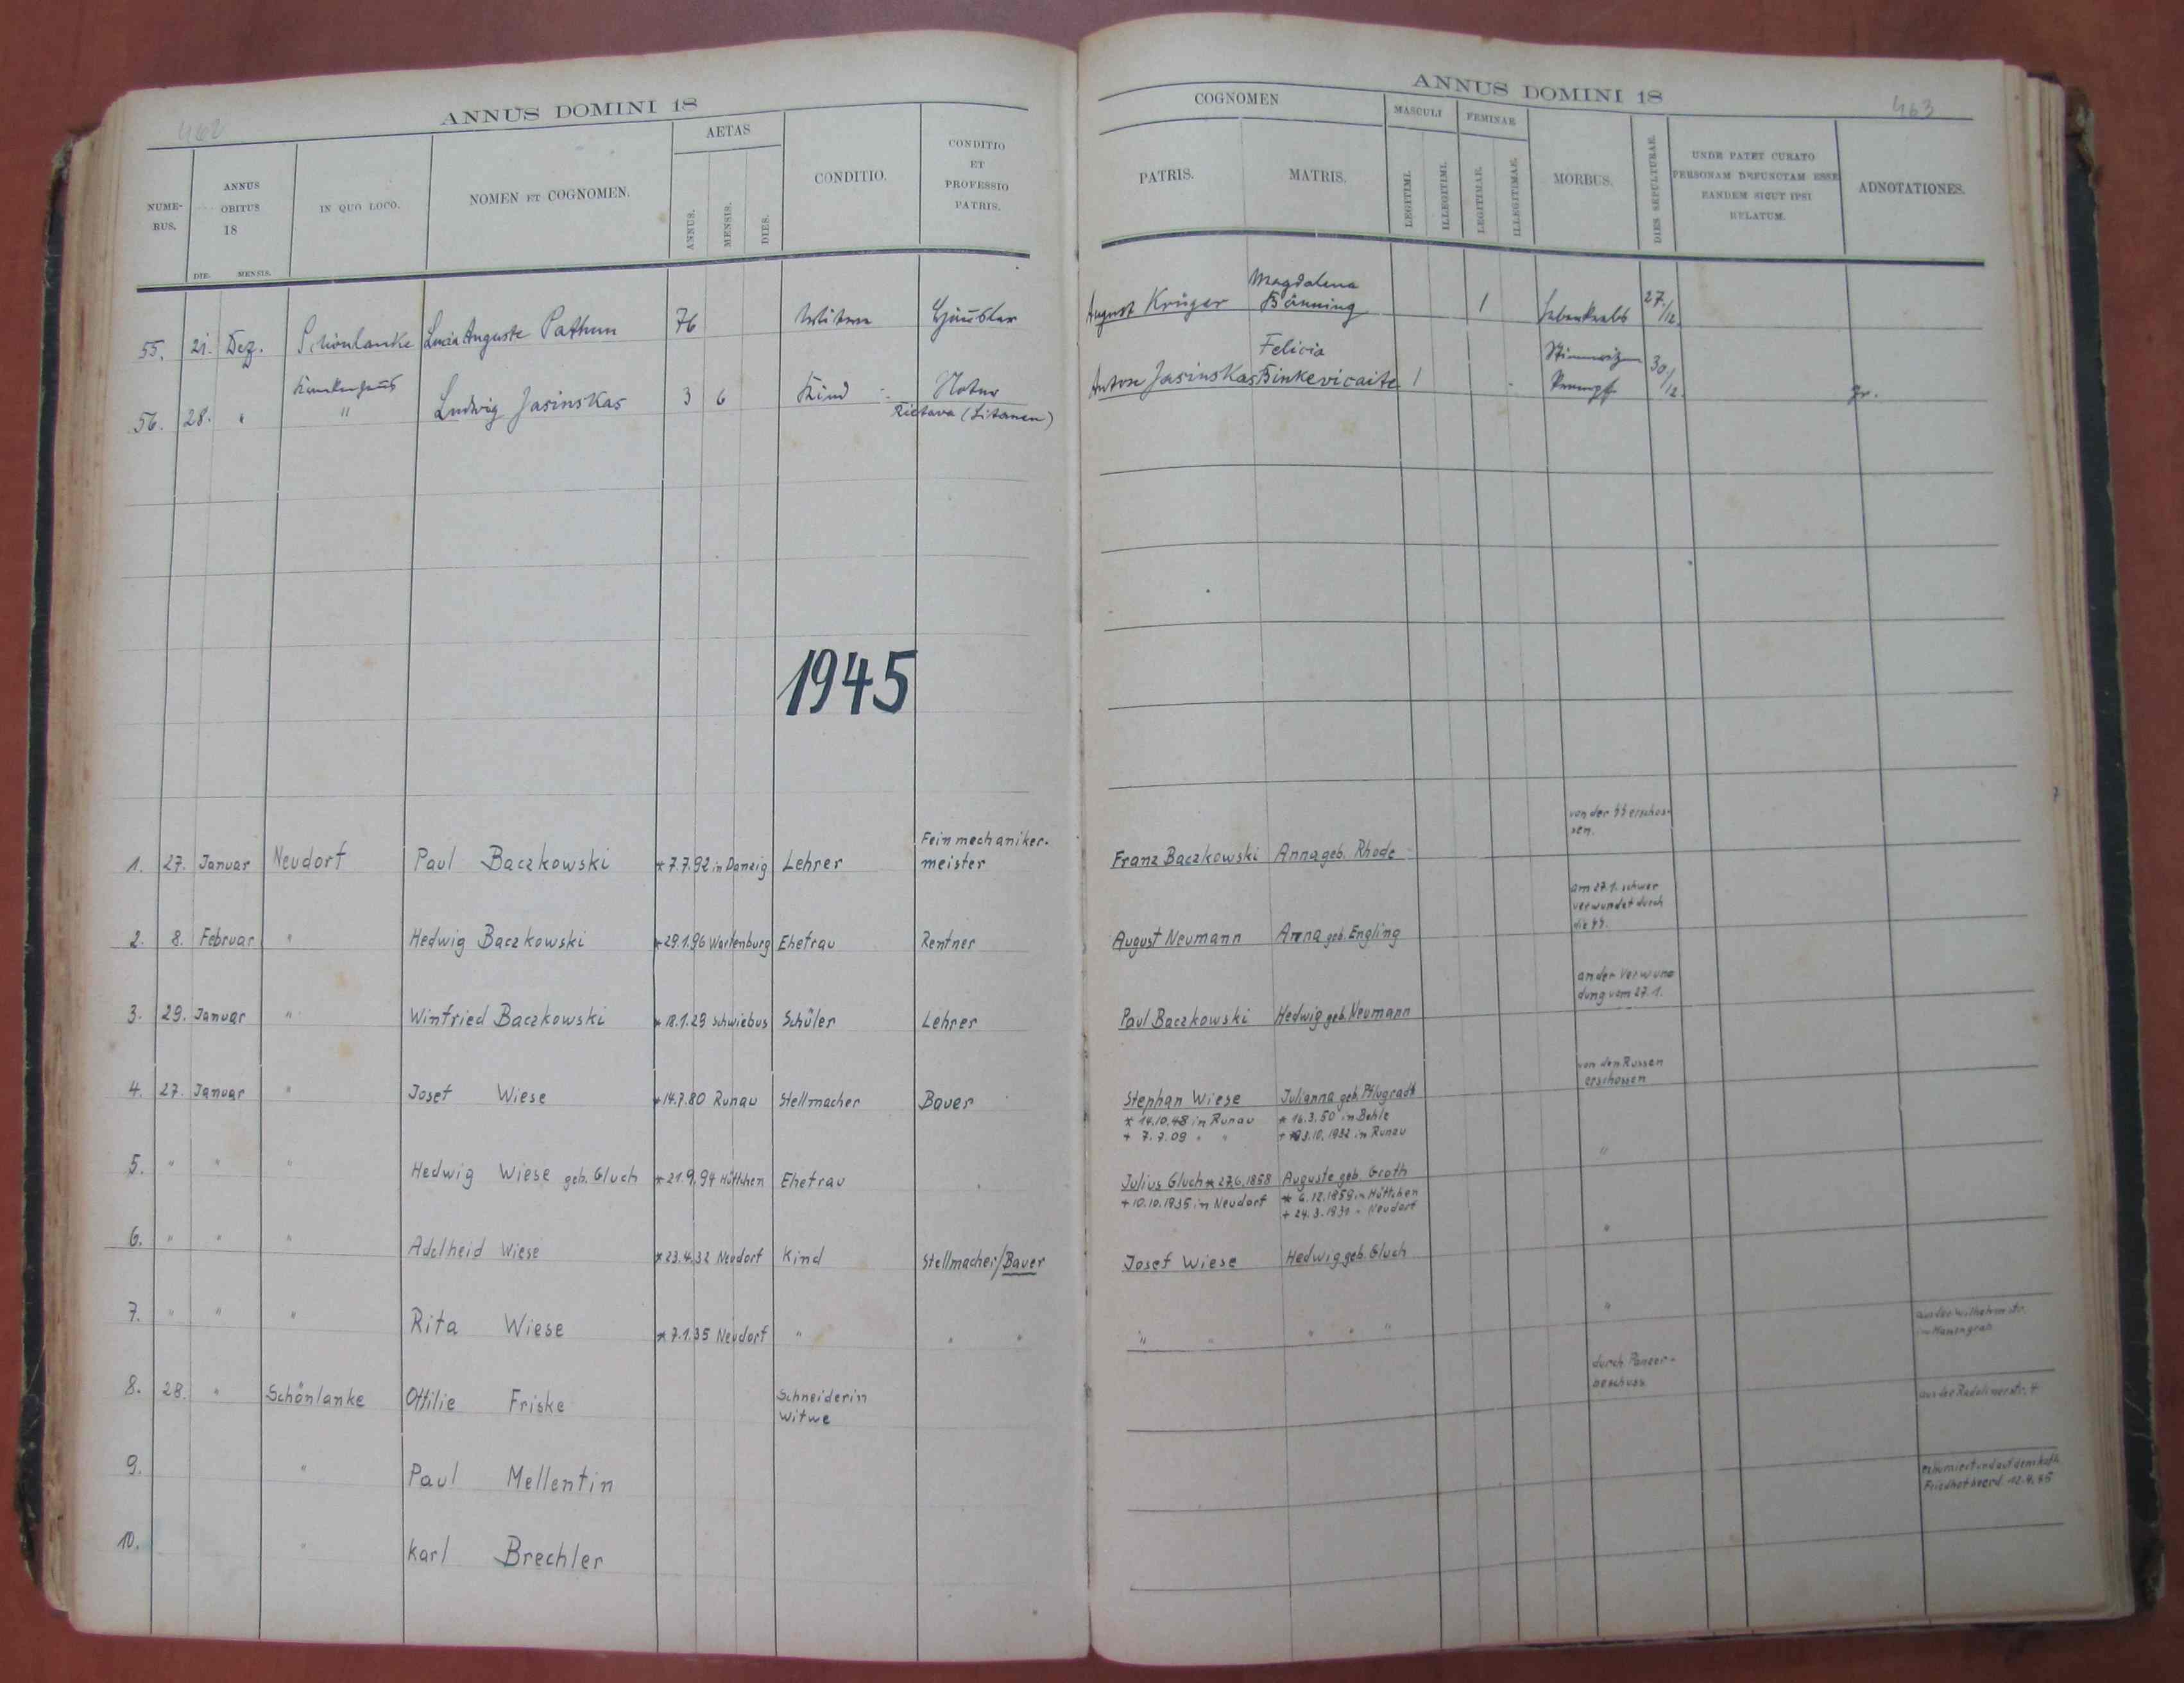 462
ANNUS DOMINI 18
NUME-
RUS.
ANNUS
OBITUS
18
DIE. MENSIS.
IN QUO LOCO.
NOMEN ET COGNOMEN.
AETAS
ANNUS.
MENSIS.
DIES.
CONDITIO.
CONDITIO
ET
PROFESSIO
PATRIS.
55. 21. Dez. Schönlanke Lucia Auguste 76 Witwe Häusler
Krankenhaus
56. 28. " " Ludwig Jasinskas 3 6 Kind Notar
Rietava (Litauen)
1945
Feinmechaniker-
1. 27. Januar Neudorf Paul Baczkowski *7.7.92 in Danzig Lehrer meister
2. 8. Februar " Hedwig Baczkowski *29.1.96 Wartenburg Ehefrau Rentner
3. 29. Januar " Winfried Baczkowski *18.1.29 Schwiebus Schüler Lehrer
4. 27. Januar " Josef Wiese *14.7.80 Runau Stellmacher Bauer
5. " " " Hedwig Wiese geb. Gluch *21.9.94 Hüttchen Ehefrau
6. " " " Adelheid Wiese *23.4.32 Neudorf Kind Stellmacher/Bauer
7. " " " Rita Wiese *7.1.35 Neudorf " " "
8. 28. " Schönlanke Ottilie Friske Schneiderin
Witwe
9. " Paul Mellentin
10. " Karl Brechler
463
ANNUS DOMINI 18
COGNOMEN
PATRIS.
MATRIS.
MASCULI
LEGITIMI.
ILLEGITIMI.
FEMINAE
LEGITIMAE.
ILLEGITIMAE.
MORBUS.
DIES SEPULTURAE.
UNDE PATET CURATO
PERSONAM DEFUNCTAM ESSE
EANDEM SICUT IPSI
RELATUM.
ADNOTATIONES.
Magdalena
August Krüger Bänning 1 Leberkrebs 27./12.
Felicia
Anton Jasinskas Binkevicaite 1 30/12. gr.
von der SS erschos-
sen.
Franz Baczkowski Anna geb. Rhode
am 27.1. schwer
verwundet durch
die SS.
August Neumann Anna geb. Engling
an der Verwun-
dung vom 27.1.
Paul Baczkowski Hedwig geb. Neumann
von den Russen
erschossen
Stephan Wiese Julianna geb. Pflugradt
* 14.10.48 in Runau * 16.3.50 in Behle
+ 7.7.09 " " + 3.10.1932 in Runau
"
Julius Gluch * 27.6.1858 Auguste geb. Groth
+ 10.10.1935 in Neudorf * 6.12.1859 in Hüttchen
+ 24.3.1931 - Neudorf
"
Josef Wiese Hedwig geb. Gluch
"
" " " " "
aus der Wilhelmstr.
im Massengrab
durch Panzer-
beschuss
aus der Radolinerstr. 4
exhumiert und auf dem kath.
Friedhof beerd. 12.4.45